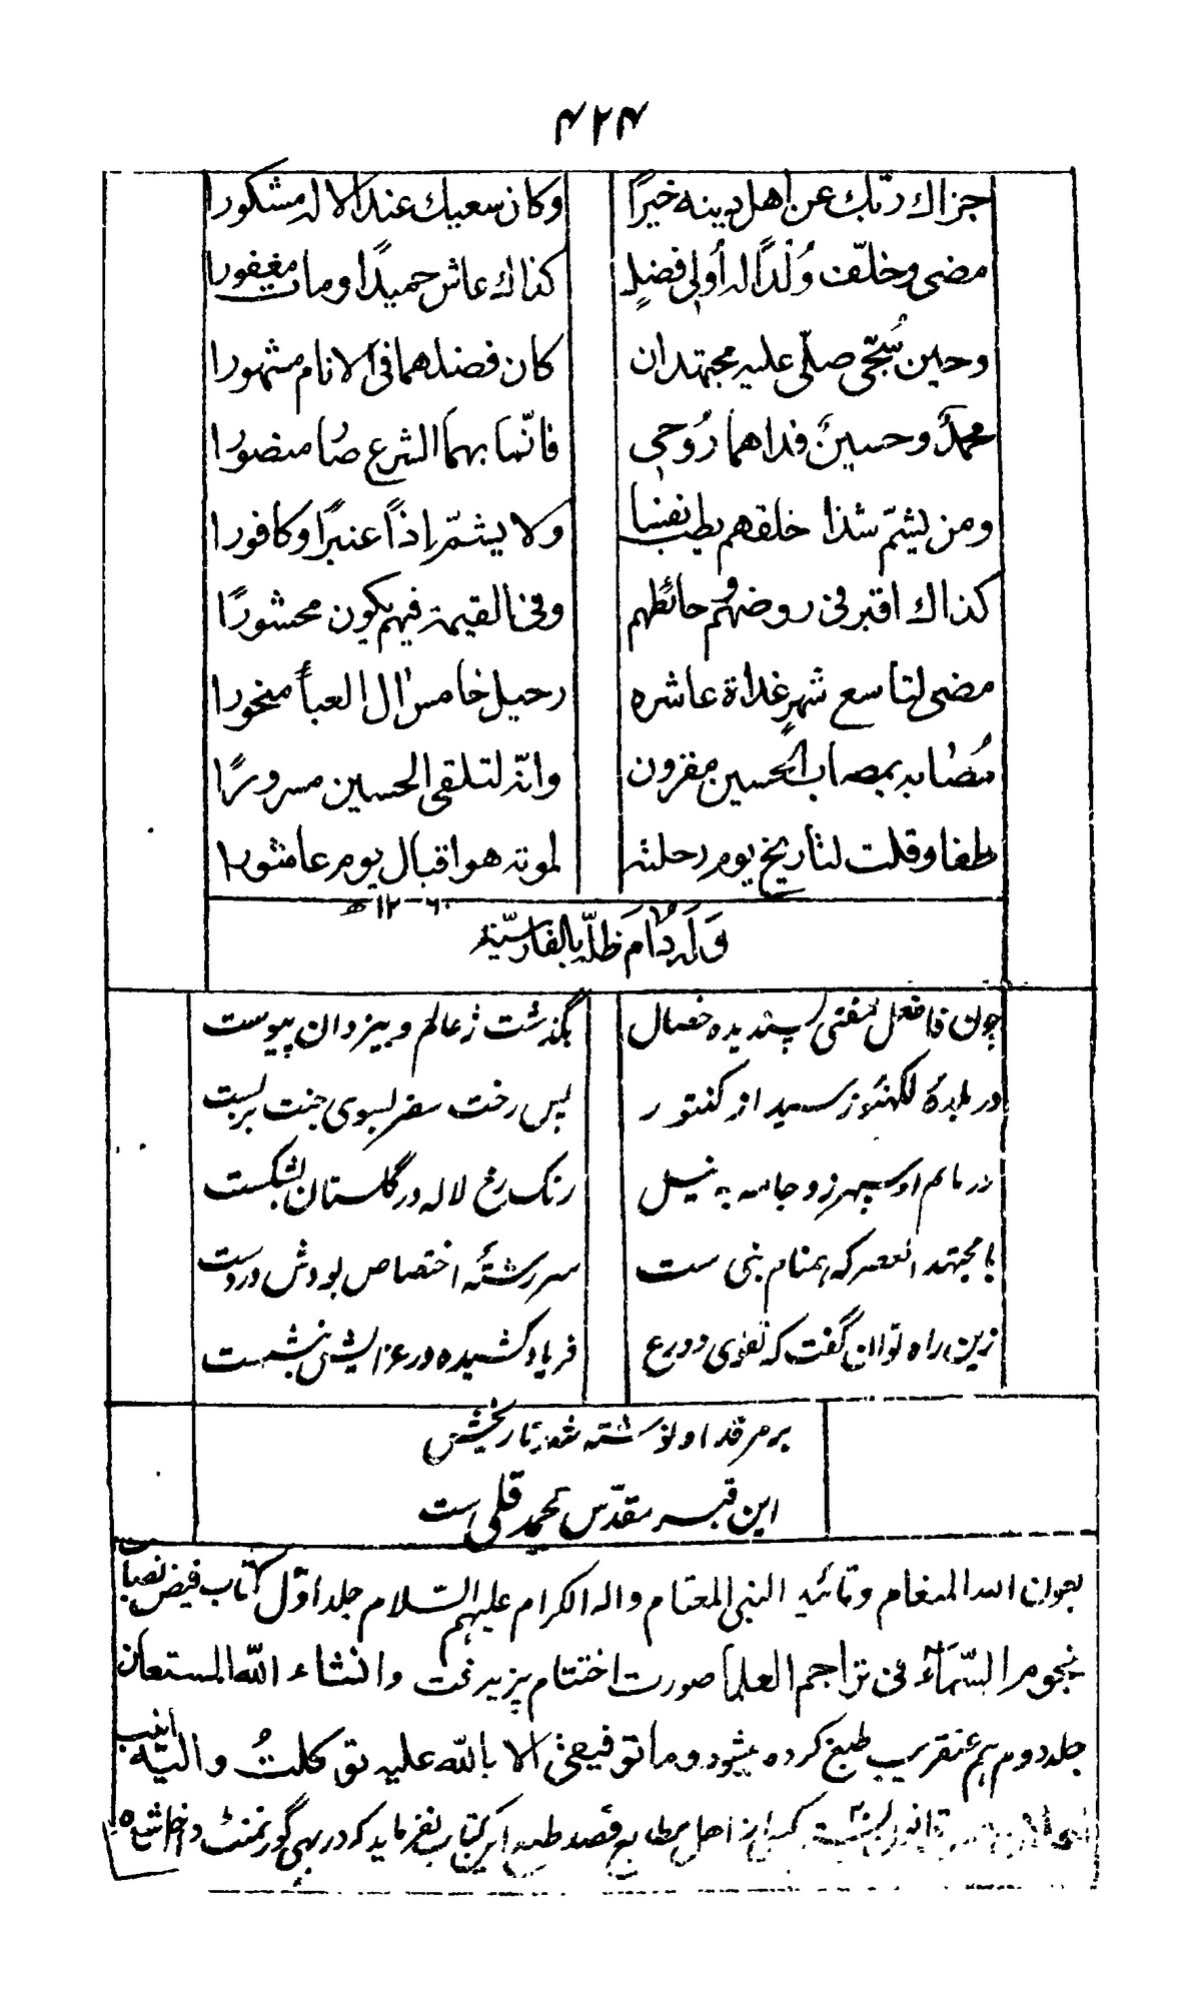 ۴۲۴
جزاك ربّك عن اهل دينه خيرًا وكان سعيك عند الاله مشكورا
مضى وخلّف وُلْدًا له أُولى فضلٍ كذاك عاش حميدًا ومات مغفورا
وحين سُجّى صلّى عليه مجتهدان كان فضلهما فى الانام مشهورا
محمدٌ وحسينٌ فداهما رُوحى فانّما بهما الشرع صار منصورًا
ومن يشمّ شذا خلقهم يطب نفسا ولا يشمّ إذاً عنبرًا وكافورا
كذاك اقبر فى روضهم وحائطهم وفى القيمة فيهم يكون محشورًا
مضى لتاسع شهرٍ غداة عاشره رحيل خامس ال العبأ منحورا
مُصابه بمصاب الحسين مقرون وانّه لتلقى الحسين مسرورًا
طفا وقلت لتاريخ يوم رحلته لموته هو اقبال يوم عاشورا
۱۲۶۰ھ
وَلَه دَامَ ظلّه بالفارسيّة
چون فاضل مفتى پسنديده خصال بگذشت ز عالم و بيزدان پيوست
در بلدهٔ لكهنؤ رسيد از كنتور پس رخت سفر بسوى جنت بربست
در ماتم او سپهر زد جامه به نيل رنگ رخ لاله در گلستان بشكست
با مجتهد العصر كه همنام نبى ست سررشتهٔ اختصاص بودش در دست
زين راه توان گفت كه تقوى و ورع فرياد كشيده در عزايش بنشست
بر مرقد او نوشته شد تاريخش
اين قبر مقدّس محمد قلى ست
بعون الله المنعام وتائيد النبى المقتام واله الكرام عليهم السّلام جلد اوّل كتاب فيض نصاب
نجوم السّمآء فى تراجم العلما صورت اختتام پزيرفت وانشاء الله المستعان
جلد دوم هم عنقريب طبع كرده ميشود وما توفيقى الا بالله عليه توكلتُ واليه انيب
كسى از اهل مطابع قصد طبع اين كتاب نفرمايد كه در بهى گورنمنٹ